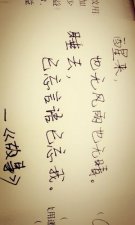 醒来，
也无风雨也无晴。
睡去，
已忘言語已忘我。
—《故事》